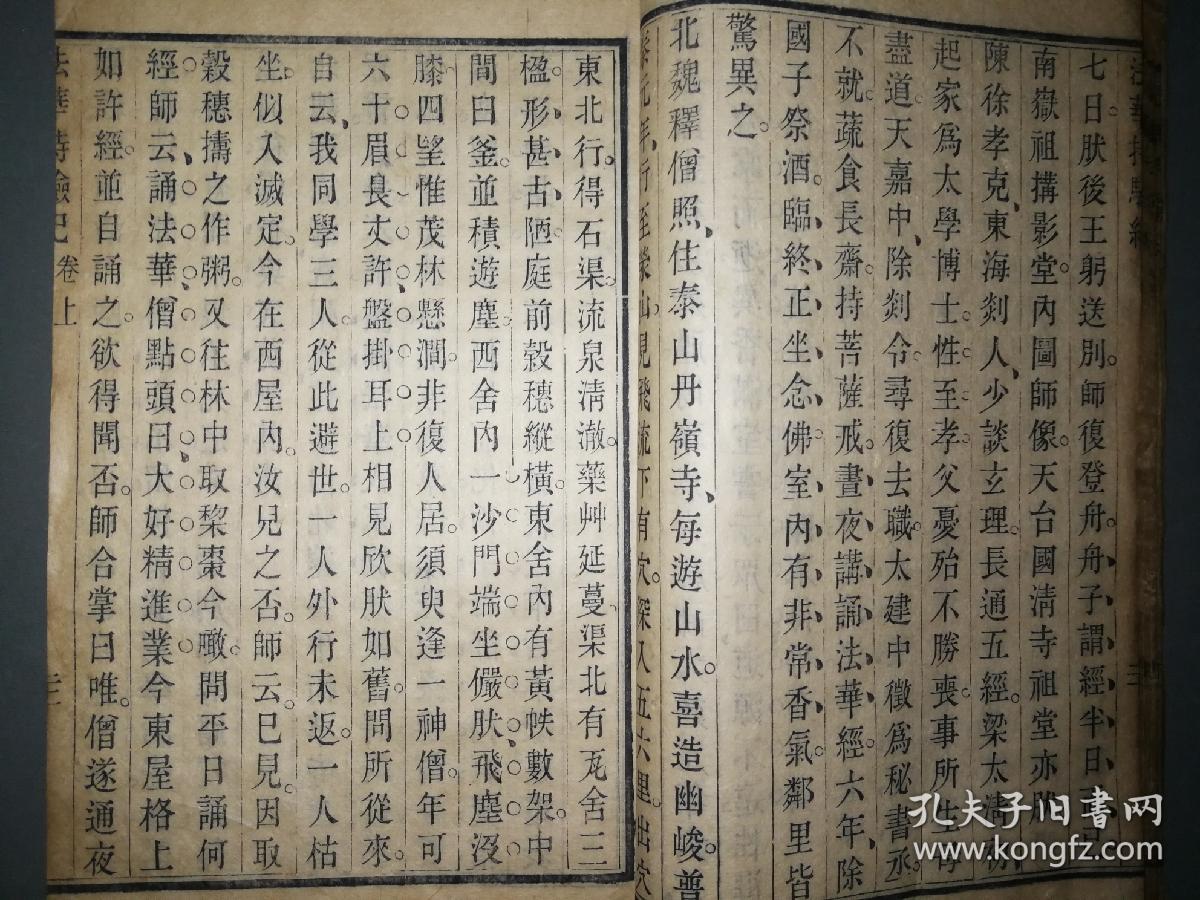 七日。肰後王躬送別。師復登舟。舟子謂。經半日
南嶽祖搆影堂。內圖師像。天台國淸寺祖堂亦肰
陳徐孝克、東海剡人、少談玄理。長通五經。梁太淸初
起家爲太學博士。性至孝。父憂殆不勝喪。事所生母
盡道。天嘉中、除剡令。尋復去職。太建中徵爲秘書丞
不就。蔬食長齋。持菩薩戒。晝夜講誦法華經。六年、除
國子祭酒。臨終正坐念佛。室內有非常香氣。鄰里皆
驚異之。
北魏釋僧照、住泰山丹嶺寺、每遊山水。喜造幽峻。普
泰元年、行至榮山。見飛流下有穴。深入五六里。出穴
東北行。得石渠。流泉淸澈。藥艸延蔓。渠北有瓦舍三
楹、形甚古陋。庭前穀穗縱橫。東舍內有黃帙數架。中
間曰釜。並積遊塵。西舍內一沙門、端坐儼肰、飛塵沒
膝。四望惟茂林懸澗。非復人居。須臾逢一神僧。年可
六十。眉長丈許、盤掛耳上。相見欣肰如舊。問所從來。
自云、我同學三人。從此避世。一人外行未返。一人枯
坐。似入滅定。今在西屋內。汝見之否。師云。巳見。因取
穀穗擣之作粥。又往林中取棃棗今噉。問平日誦何
經。師云、誦法華、僧點頭曰、大好精進業。今東屋格上
如許經。並自誦之。欲得聞否。師合掌曰唯。僧遂通夜
法華持驗記 卷上
孔夫子旧书网
www.kongfz.com